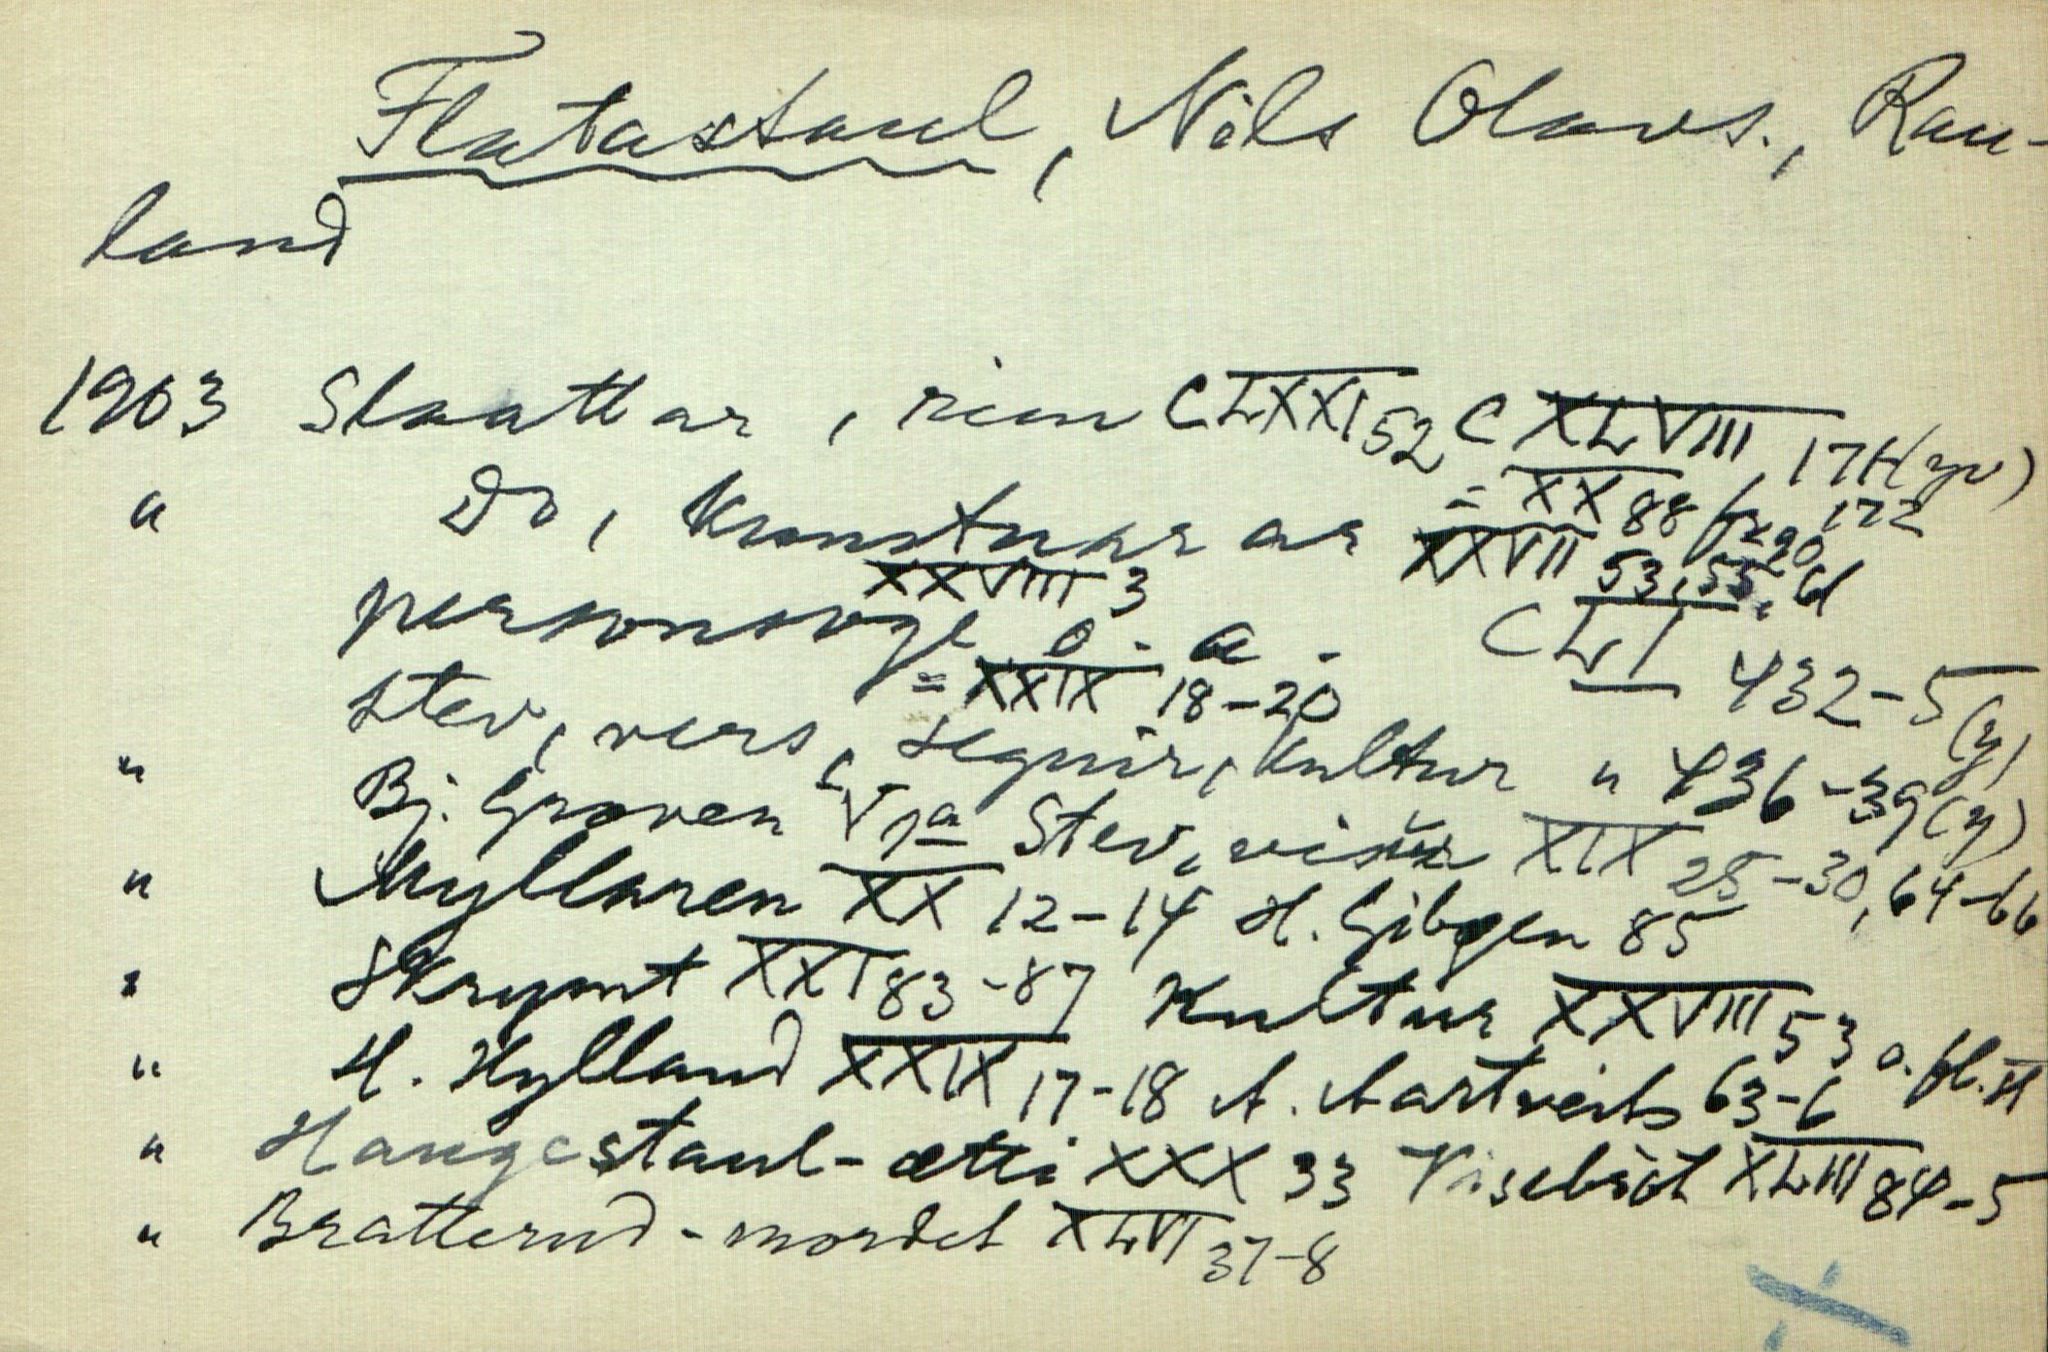 Flatastaul, Nils Olavs., Rau-
land
1903 Slaattar, rim CLXXI 52 CXLVIII 171 (yv)
" Do, kunstnarar = XX 88 172
XXVIII 3 XXVII 53, 55,
personsoge o. a. CLI 432-5 (y)
= XXIX 18-20
stev, vers, segnir, kultur " 436-39 (y)
" Bj. Groven Stev, visur XIX 25-30, 64-66
" Myllaren XX 12-14 H. Gibøen 85
" Skrymt XXI 83-87 Kultur XXVIII 53 o. fl. st
" H. Hylland XXIX 17-18 A. Aartveits 63-6
" Haugestaul-ætti XXX 33 Visebrot XLIII 84-5
" Bratterud-mordet XLVI 37-8